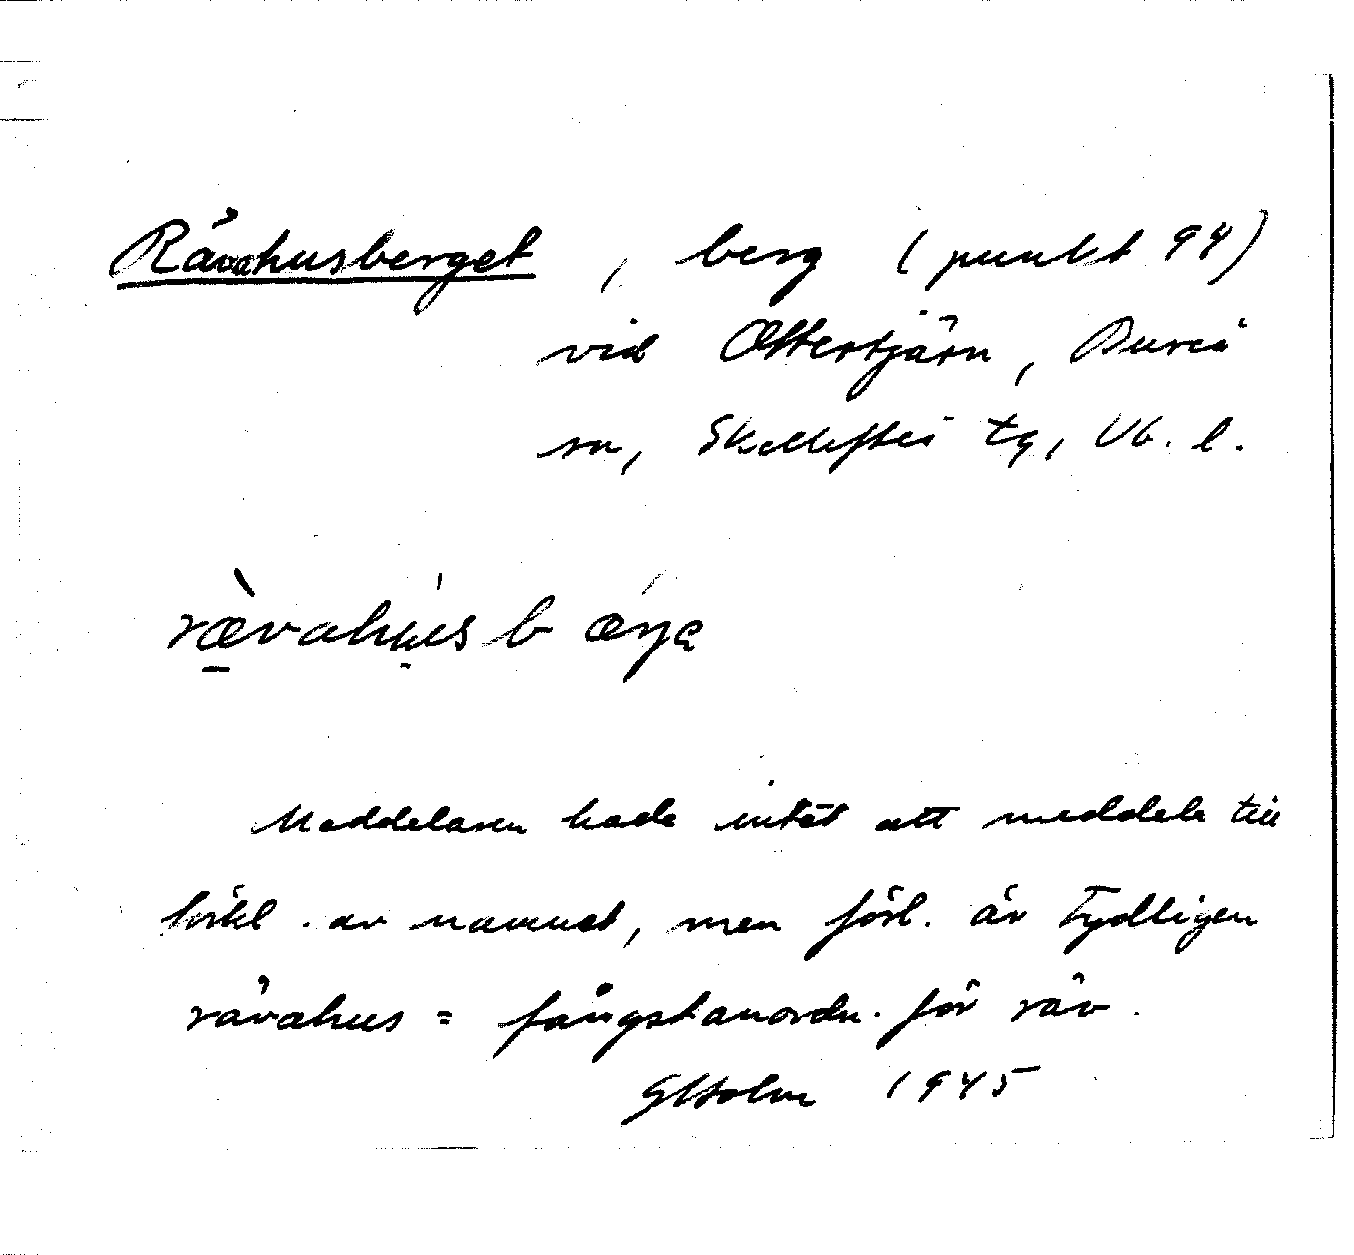 Rävahusberget, berg (punkt 94)
vid Ottertjärn, Bureå
sn, Skellefteå tg, Vb. l.
rævahusbærjɛ
Meddelaren hade intet att meddela till
förkl. av namnet, men förl. är tydligen
rävahus = fångstanordn. för räv.
GHolm 1945